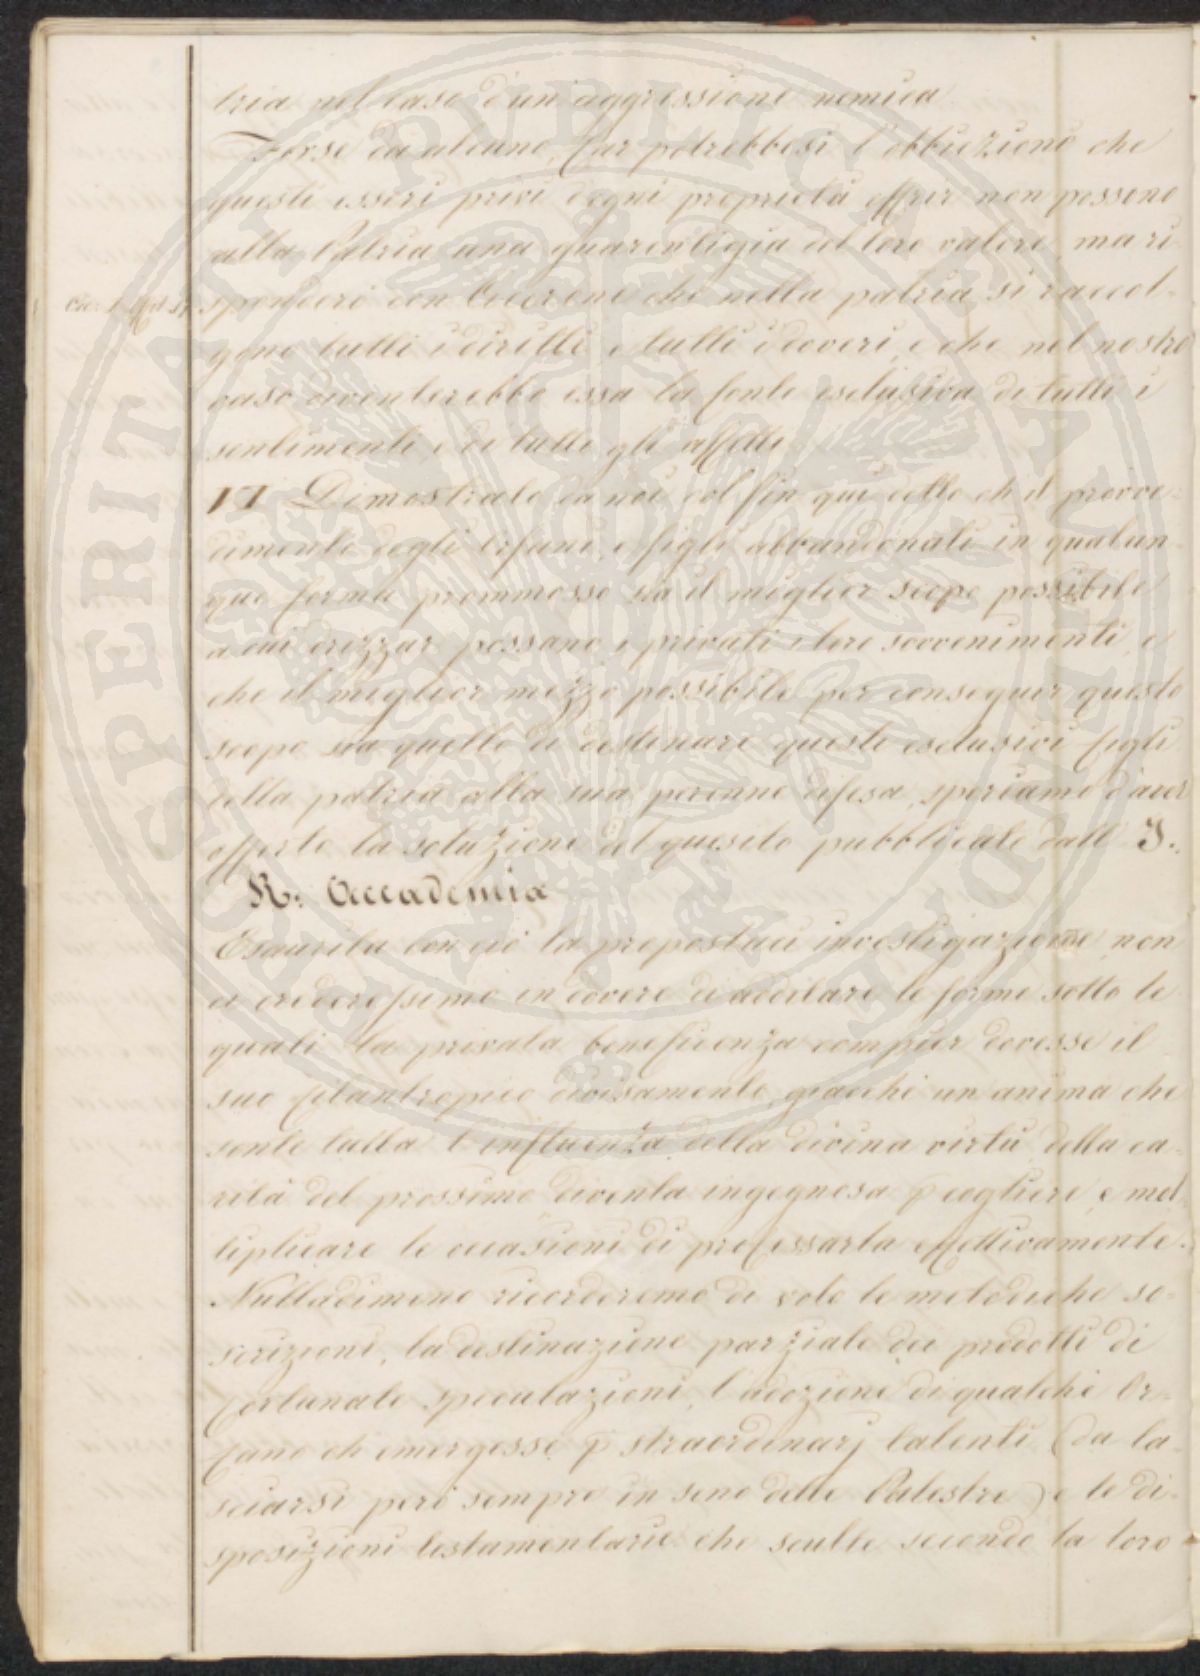 tria nel caso d'un'aggressione nemica
Forse da alcuno, far potrebbesi l'obbiezione che
questi esseri privi d'ogni proprietà offrir non possono
alla Patria una guarentigia del loro valore, ma ri-
sponderò con Cicerone che nella patria si raccol-
gono tutti i diritti e tutti i doveri, e che nel nostro
caso diventerebbe essa la fonte esclusiva di tutti i
sentimenti e di tutti gli affetti.
VI Dimostrato da noi col fin qui detto ch'il provve-
dimento degli Orfani, e figli abbandonati in qualun-
que forma prommosso sia il miglior scopo possibile
a cui drizzar possano i privati i loro sovvenimenti, e
che il miglior mezzo possibile per conseguir questo
scopo sia quello di destinare questi esclusivi figli
della patria alla sua perenne difesa, speriamo d'aver
offerto la soluzione del quesito pubblicato dall' I.
R. Accademia
Esaurita con ciò la propostaci investigazione non
ci crederessimo in dovere di additare le forme sotto le
quali la privata beneficenza compier dovesse il
suo filantropico divisamento, giacchè un'anima che
sente tutta l'influenza della divina virtù della ca-
rità del prossimo diventa ingegnosa p cogliere e mol-
tiplicare le occasioni di professarla effettivamente.
Nulladimeno ricorderemo di volo le metodiche so-
scrizioni, la destinazione parziale dei prodotti di
fortunate speculazioni, l'adozione di qualche Or-
fano ch'emergesse p straordinarj talenti (da la-
sciarsi però sempre in seno delle Palestre) e le di-
sposizioni testamentarie che sculte secondo la loro